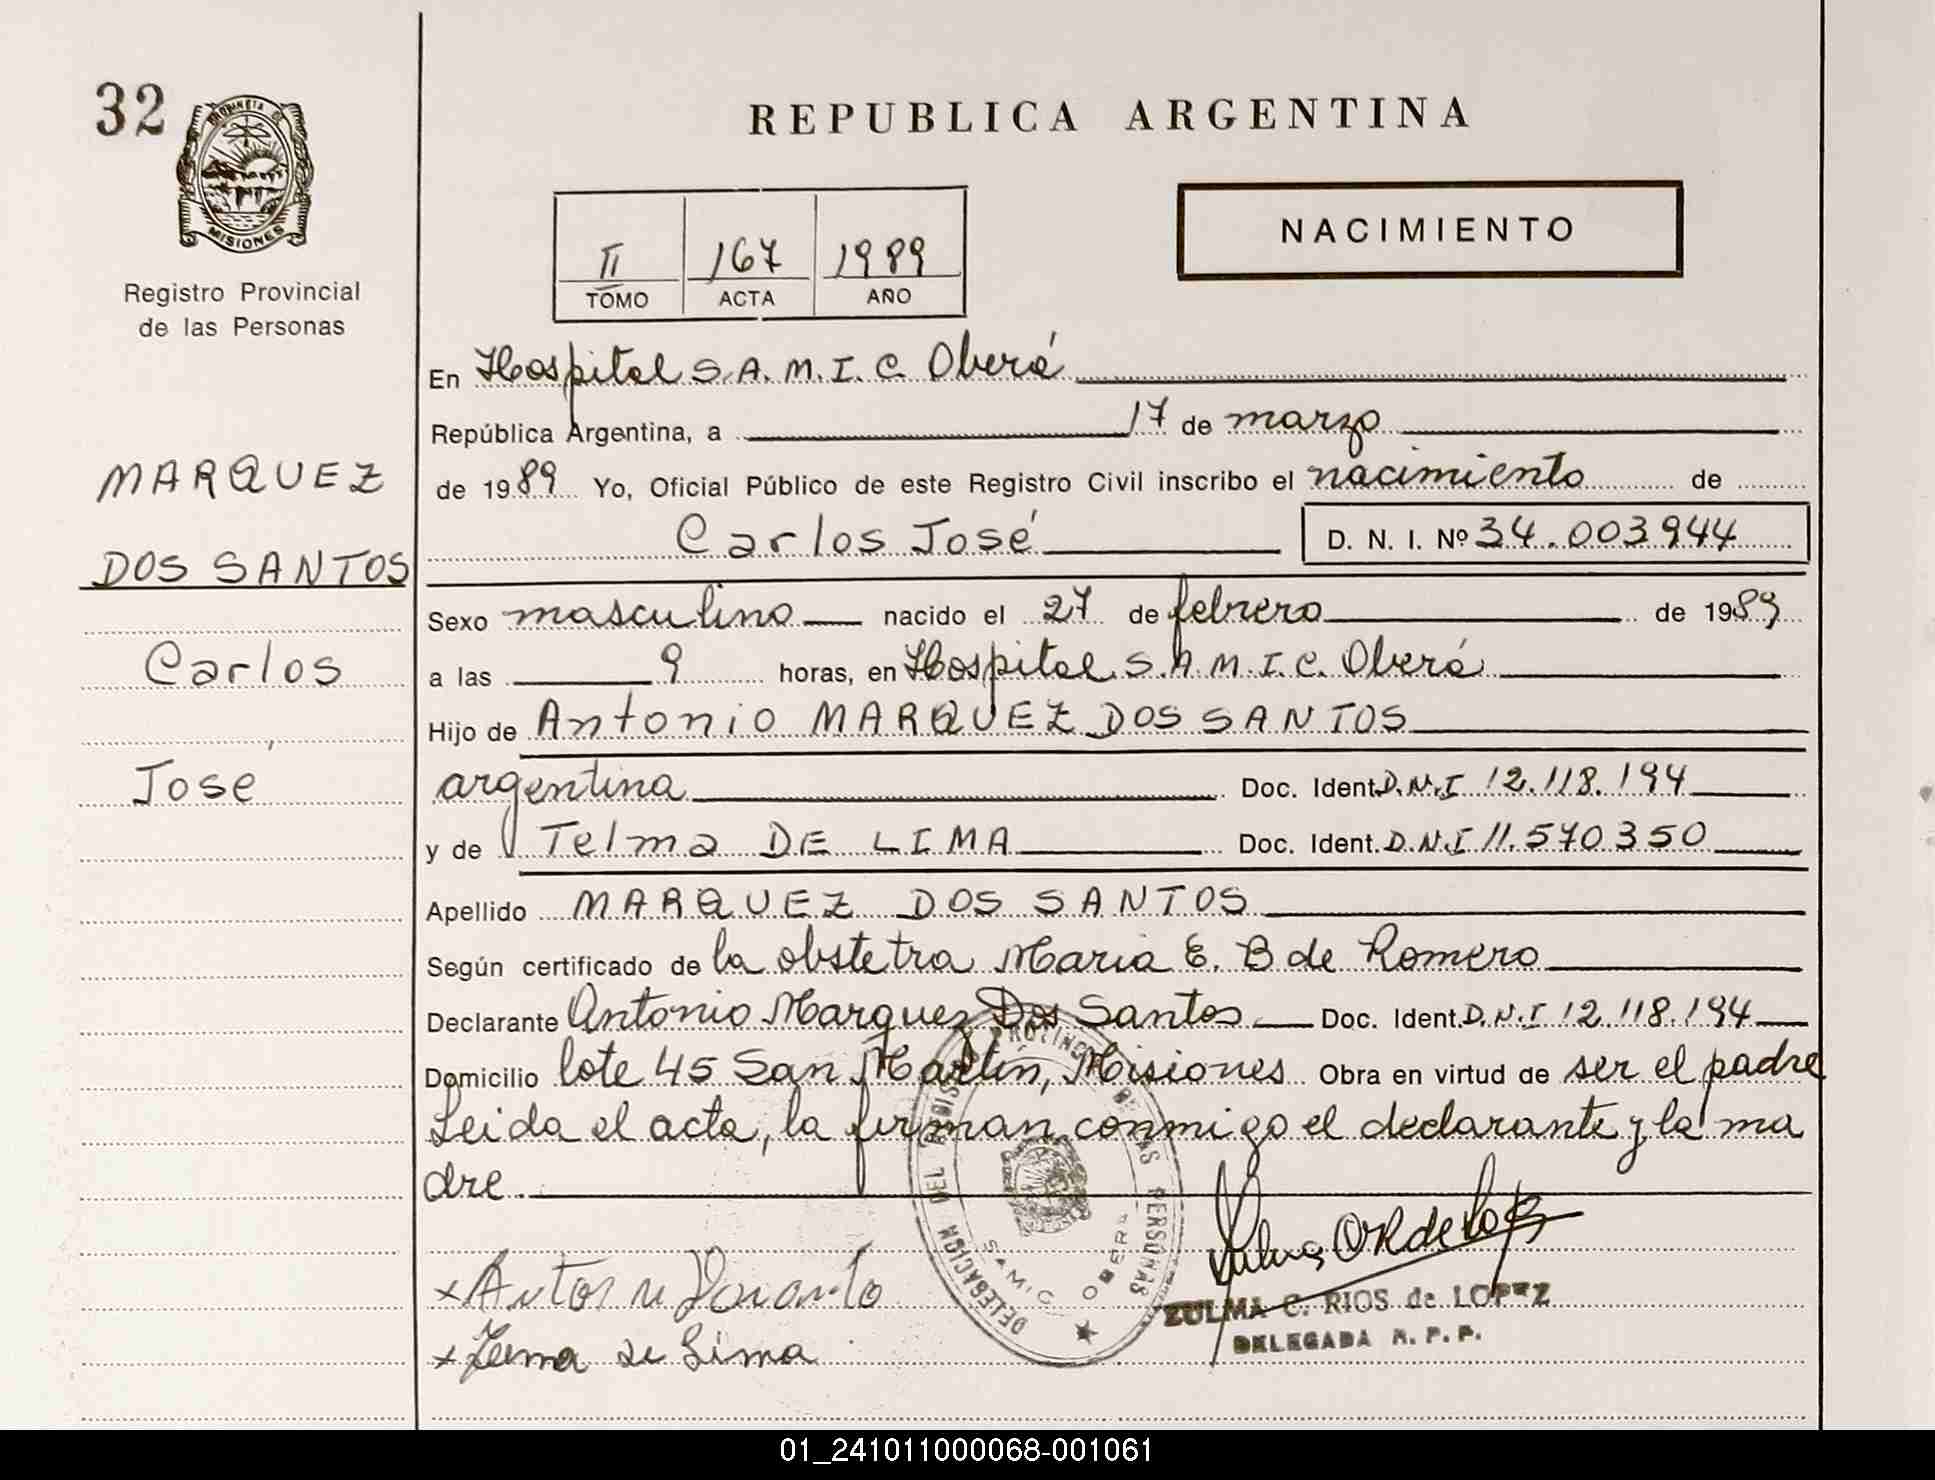 32
PROVINCIA DE
MISIONES
Registro Provincial
de las Personas
MARQUEZ
DOS SANTOS
Carlos
José
REPUBLICA ARGENTINA
II 167 1989
TOMO ACTA AÑO
NACIMIENTO
En Hospital S.A.M.I.C. Oberá
República Argentina, a 17 de marzo
de 1989 Yo, Oficial Público de este Registro Civil inscribo el nacimiento de
Carlos José D. N. I. Nº 34.003944
Sexo masculino nacido el 27 de febrero de 1989
a las 9 horas, en Hospital S.A.M.I.C. Oberá
Hijo de Antonio MARQUEZ DOS SANTOS
argentina Doc. Ident. D.N.I 12.118.194
y de Telma DE LIMA Doc. Ident. D.N.I 11.570350
Apellido MARQUEZ DOS SANTOS
Según certificado de la obstetra Maria E. B de Romero
Declarante Antonio Marquez Dos Santos Doc. Ident. D.N.I 12.118.194
Domicilio lote 45 San Martín, Misiones Obra en virtud de ser el padre
Leida el acta, la firman conmigo el declarante y la ma
dre.
DELEGACION DEL REGISTRO PROVINCIAL DE LAS PERSONAS
SAMIC OBERA
x
x de Lima
ZULMA C. RIOS de LOPEZ
DELEGADA R. P. P.
01_241011000068-001061